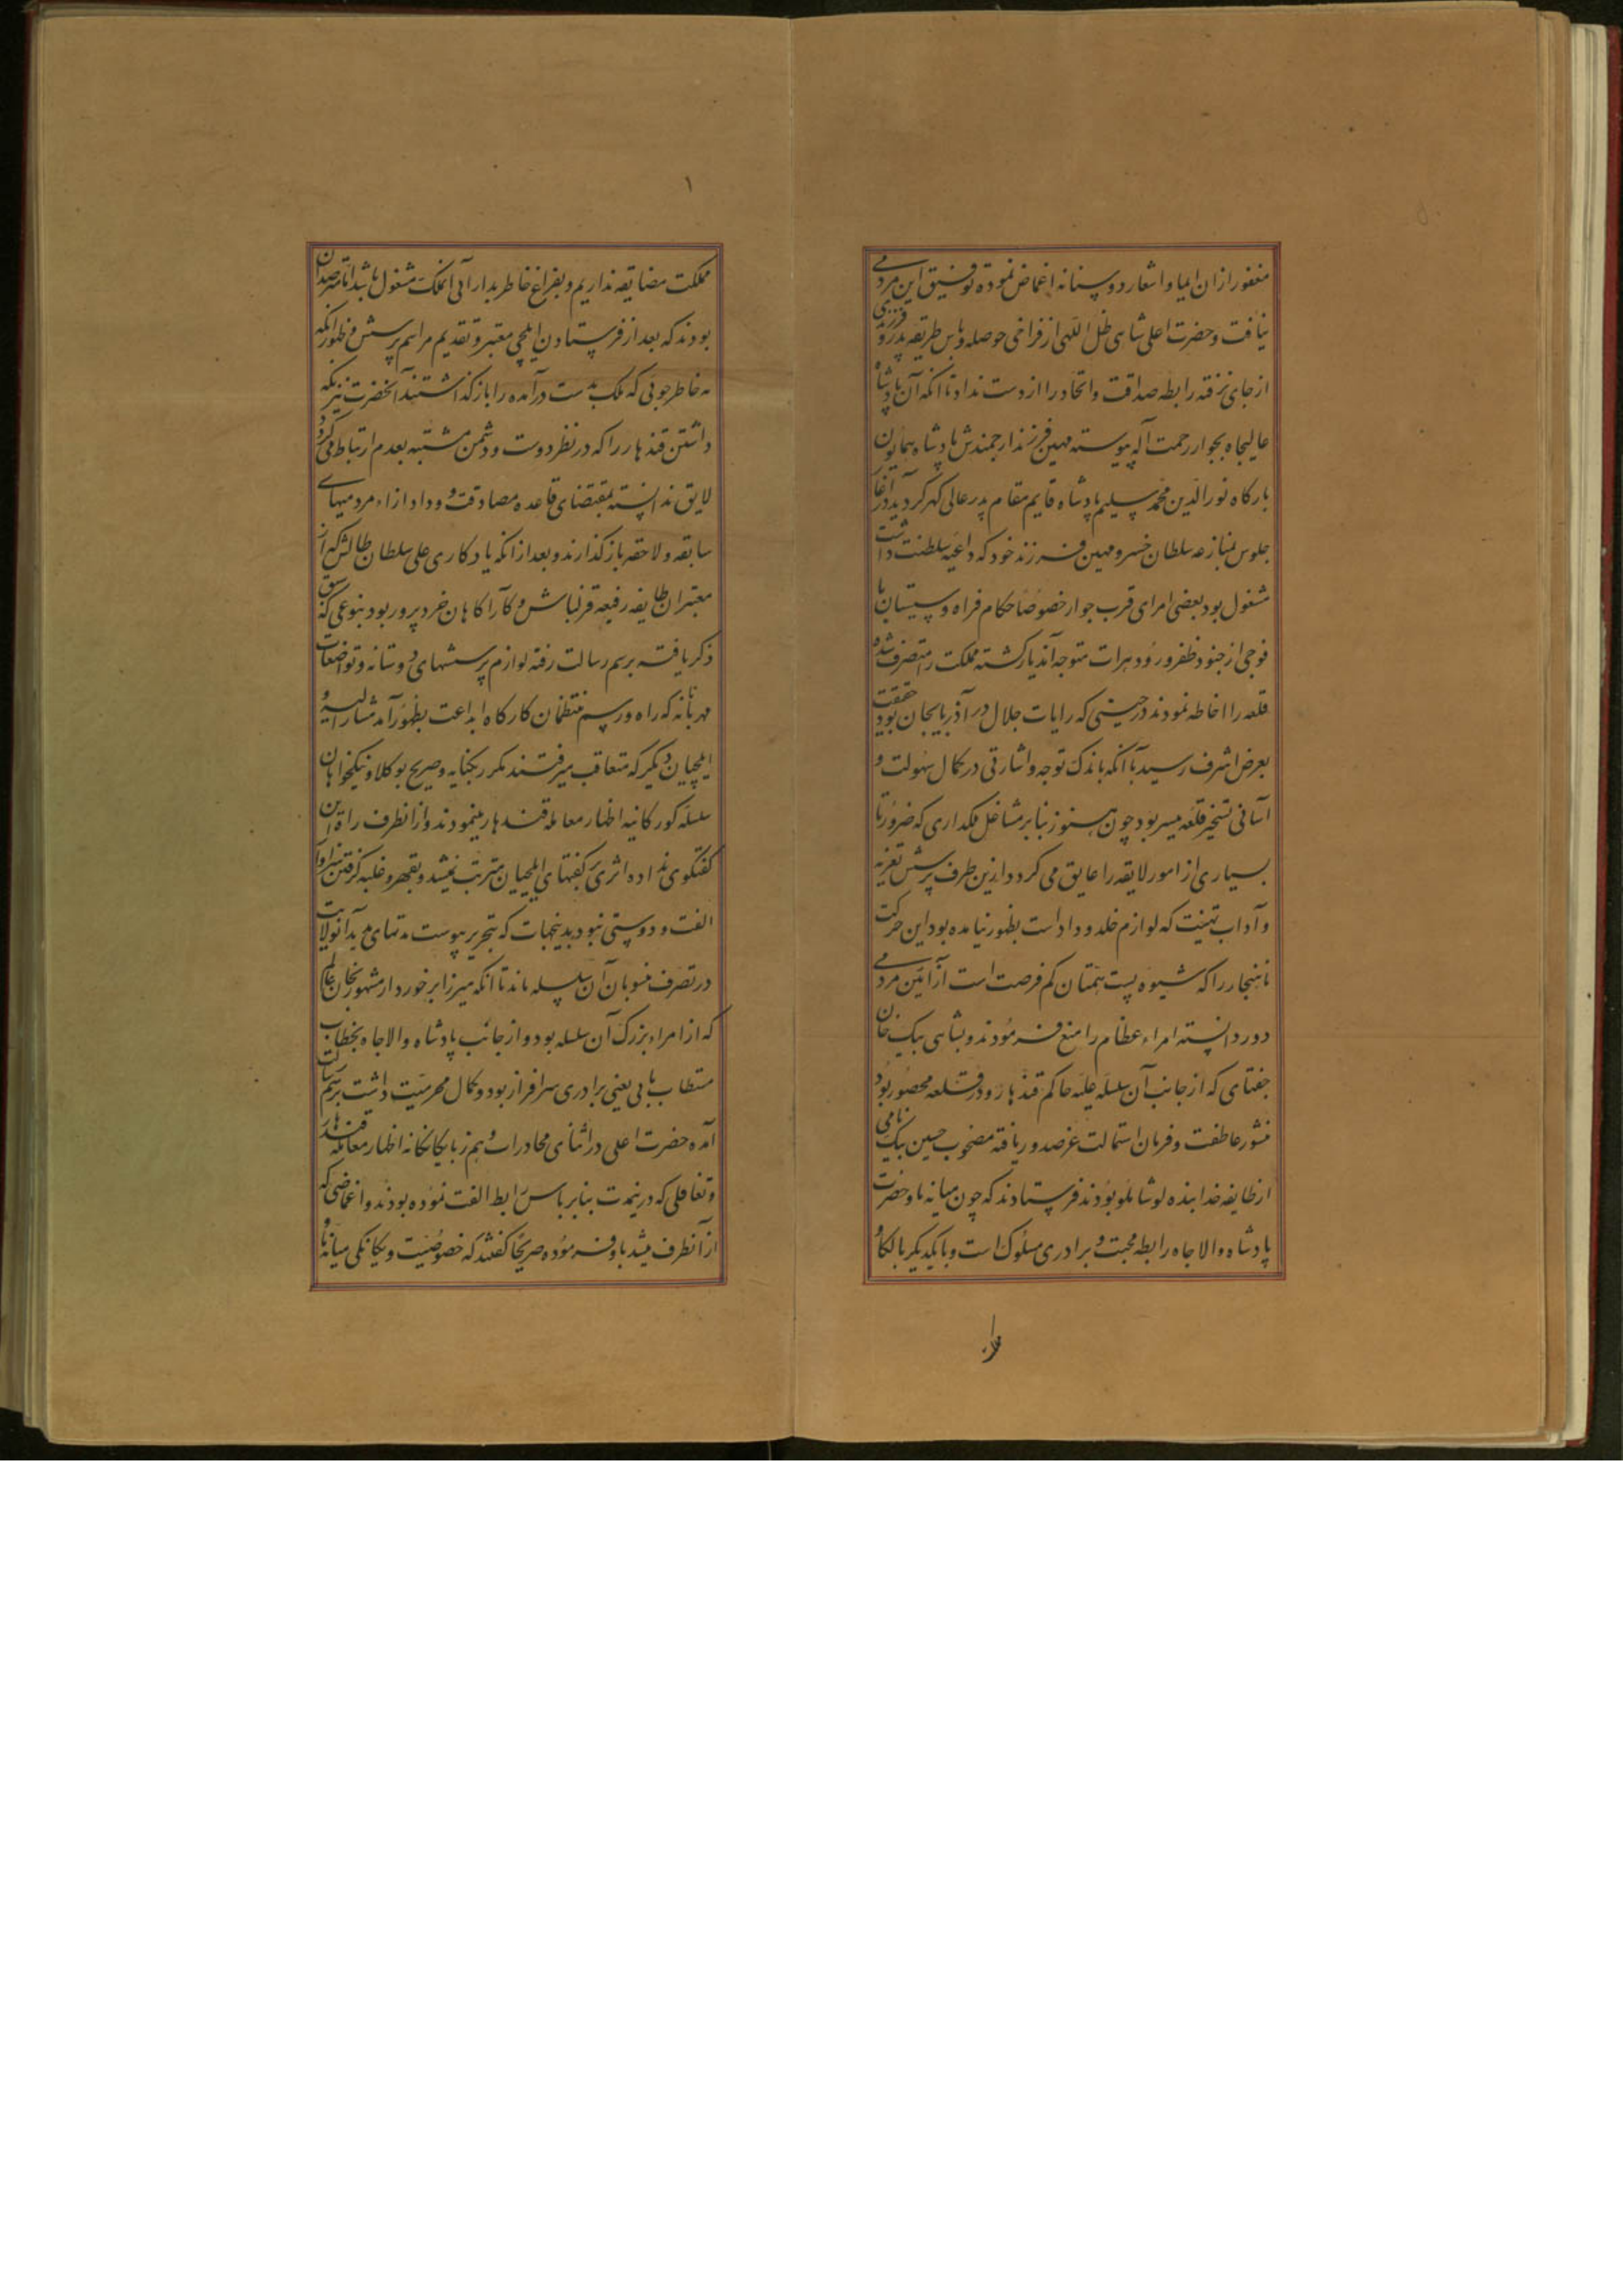 مغفور ازان ایما و اشعار دوستانه اغماض نموده توفیق این مردمی
نیافت و حضرت اعلی شاهی ظل اللهی از فراخی حوصله و پاس طریقه پدر فرزندی
از جای نرفته رابطه صداقت و اتحاد را از دست نداد تا انکه آن پادشاه
عالیجاه بجوار رحمت اله پیوسته مهین فرزند ارجمندش پادشاه همایون
بارکاه نور الدین محمد سلیم پادشاه قایم مقام پدر عالی کهر کردید در آغاز
جلوس بمنازعه سلطان خسرو مهین فرزند خود که داعیه سلطنت داشت
مشغول بود بعضی امرای قرب جوار خصوصا حکام فراه و سیستان با
فوجی از جنود ظفر ورود هرات متوجه آندیار کشته مملکت را متصرف شده
قلعه را احاطه نمودند در حینی که رایات جلال در آذربایجان بود حقیقت
بعرض اشرف رسید با انکه باندک توجه و اشارتی در کمال سهولت و
آسانی تسخیر قلعه میسر بود چون هنوز بنابر مشاغل ملکداری که ضرورتا
بسیاری از امور لایقه را عایق می کردد ازین طرف پرسش تعزیه
و آداب تهنیت که لوازم خلد و وداد است بظهور نیامده بود این حرکت
ناهنجار را که شیوه پست همتان کم فرصت است از آئین مردمی
دور دانسته امراء عظام را منع فرمودند و بشاهی بیک خان
جغتای که از جانب آن سلسله علیه حاکم قندهار و در قلعه محصور بود
منشور عاطفت و فرمان استمالت عز صدور یافته مصحوب حسین بیک نامی
از طایفه خدابنده لو شاملو بودند فرستادند که چون میانه ما و حضرت
پادشاه والا جاه رابطه محبت و برادری مسلوک است و بایکدیکر بالکا و
مملکت مضایقه نداریم و بفراغ خاطر بدارائی انملک مشغول باشد اما مترصدان
بودند که بعد از فرستادن ایلچی معتبر و تقدیم مراسم پرسش و ظهور انکه
به خاطر جوئی که ملک بدست درآمده را باز کذاشتند آنحضرت نیز نکه
داشتن قندهار را که در نظر دوست و دشمن مشتبه بعدم ارتباط می کردد
لایق ندانسته بمقتضای قاعده مصادقت و وداد ازاء مردمیهای
سابقه و لاحقه باز کذارند و بعد از انکه یادکاری علی سلطان طالش که از
معتبران طایفه رفیعه قزلباش و کارآکاهان خرد پرور بود بنوعی که سبق
ذکر یافته برسم رسالت رفته لوازم پرسشهای دوستانه و تواضعات
مهربانانه که راه و رسم منتظمان کارکاه ابداعت بظهور آمد مشار الیه و
ایلچیان دیکر که متعاقب میرفتند مکرر بکنایه و صریح بوکلا و نیکخواهان
سلسله کورکانیه اظهار معامله قندهار مینمودند و از انطرف راه این
کفتکوی نداده اثری بر کفتهای ایلچیان مترتب نمیشد و بقهر و غلبه کرفتن سزاوار
الفت و دوستی نبود بدینجهات که بتحریر پیوست مدتهای مدید آنولایت
در تصرف منسوبان آن سلسله ماند تا انکه میرزا برخوردار مشهور بخان عالم
که از امراء بزرک آن سلسله بود و از جانب پادشاه والا جاه بخطاب
مستطاب بابی یعنی برادری سرافراز بود و کمال محرمیت داشت برسم رسالت
آمده حضرت اعلی در اثنای محادرات و هم زبانی یکانکانه اظهار معامله قندهار
و تغافلی که درینمدت بنابر پاس رابطه الفت نموده بودند و اغماضی که
از آنطرف میشد باو فرموده صریحا کفتند که خصوصیت و یکانکی میانه ما و